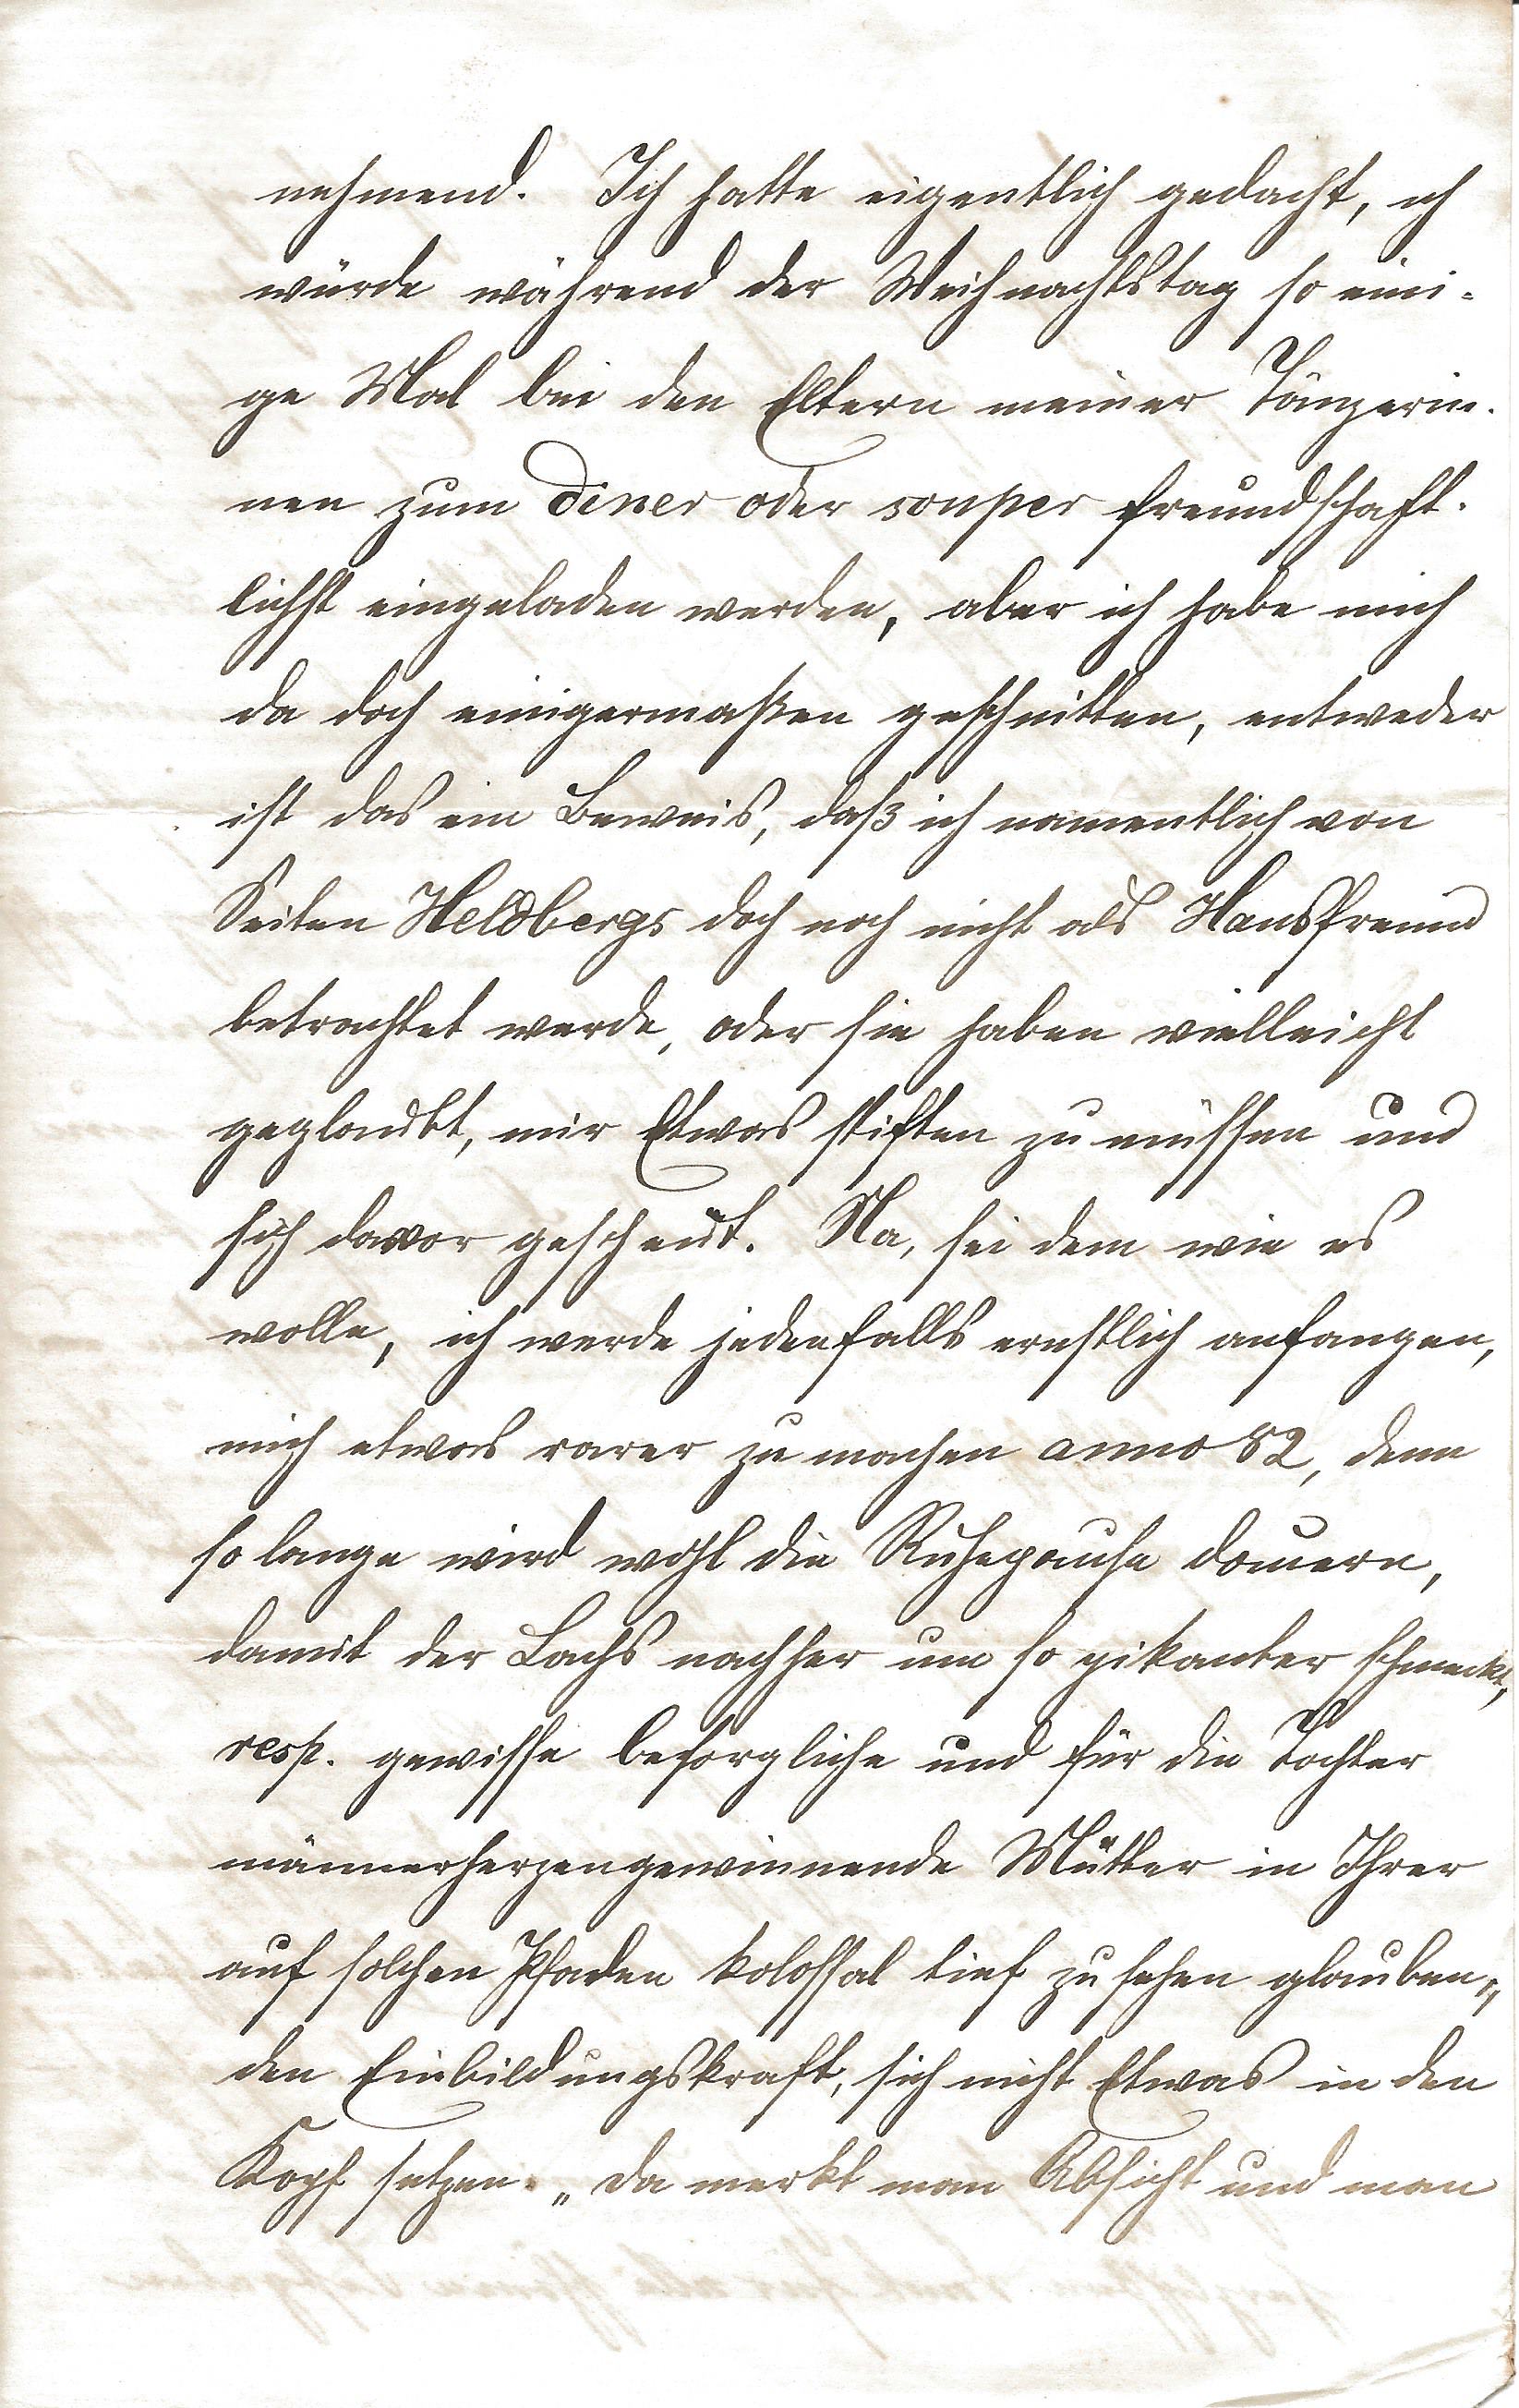 nehmend. Ich hatte eigentlich gedacht, ich
würde während der Weihnachtstag so eini-
ge Mal bei den Eltern meiner Tänzerin-
nen zum diner oder souper freundschaft-
lichst eingeladen werden, aber ich habe mich
da doch einigermaßen geschnitten, entweder
ist das ein Beweis, daß ich namentlich von
Seiten Heldbergs doch noch nicht als Hausfreund
betrachtet werde, oder sie haben vielleicht
geglaubt, mir Etwas stiften zu müssen und
sich davor gescheut. Na, sei dem wie es
wolle, ich werde jedenfalls ernstlich anfangen,
mich etwas rarer zu machen anno 82, denn
so lange wird wohl die Ruhepause dauern,
damit der Lachs nachher um so pikanter schmeckt,
resp. gewisse besorgliche und für die Tochter
männerherzengewinnende Mütter in Ihrer
auf solchen Pfaden kolossal tief zu sehen glauben-
den Einbildungskraft, sich nicht Etwas in den
Kopf setzen. „Da merkt man Absicht und man